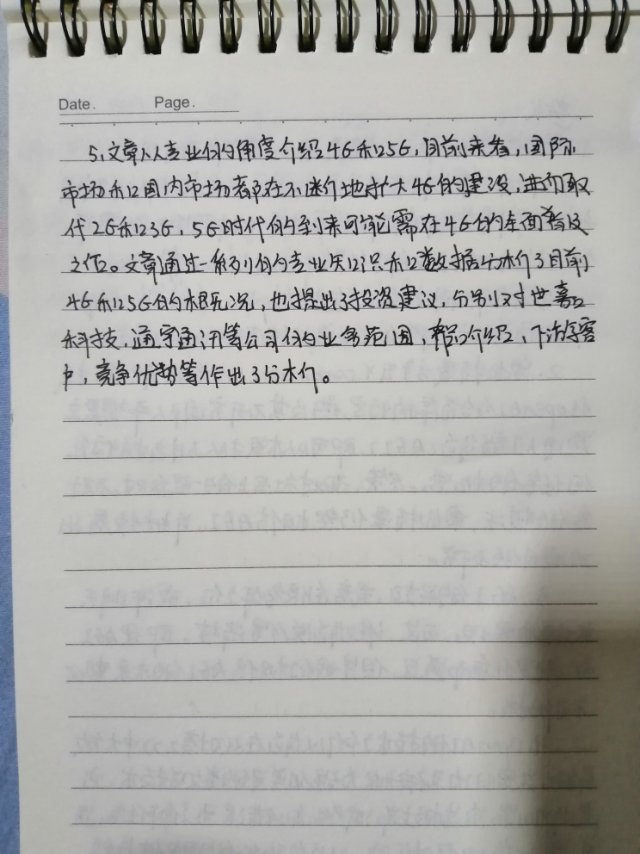 Date. Page.
5、文章从专业的角度介绍4G和5G,目前来看,国际
市场和国内市场都在不断地扩大4G的建设,进而取
代2G和3G,5G时代的到来可能需在4G的全面普及
之后。文章通过一系列的专业知识和数据分析了目前
4G和5G的概况,也提出了投资建议,分别对世嘉
科技,通宇通讯等公司的业务范围,产品介绍,下游客
户,竞争优势等作出了分析。